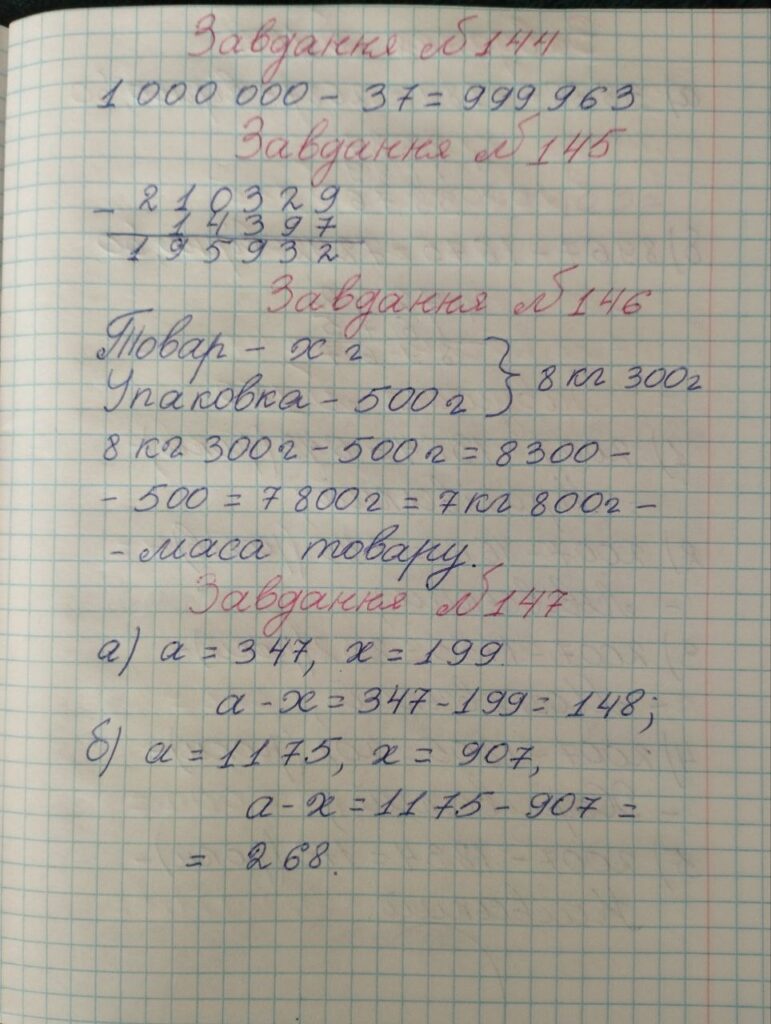 Завдання №144
1 000 000 - 37 = 999 963
Завдання №145
- 210329
14397
195932
Завдання №146
Товар - х г
Упаковка - 500 г } 8 кг 300г
8 кг 300г - 500г = 8300 -
- 500 = 7 800г = 7кг 800г -
- маса товару.
Завдання №147
а) а = 347, х = 199.
а - х = 347 - 199 = 148;
б) а = 1175, х = 907,
а - х = 1175 - 907 =
= 268.